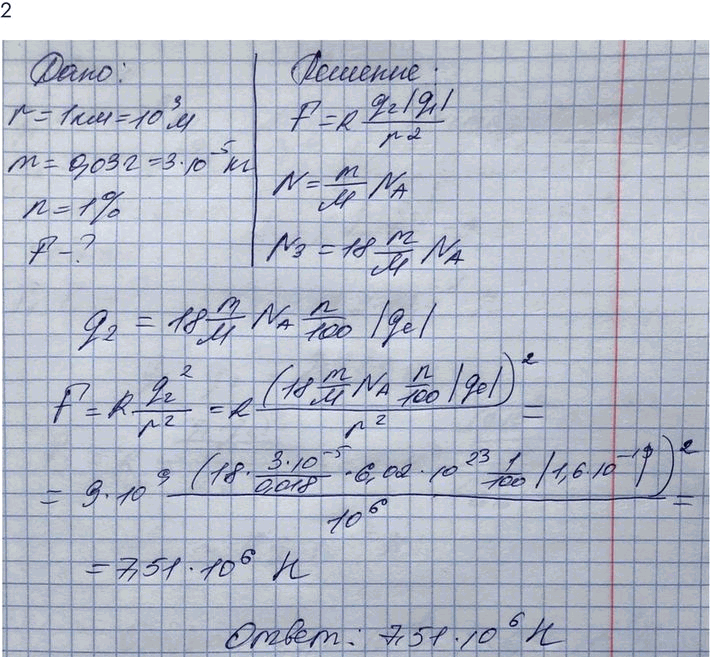 2
Дано:
r = 1км = 10³ м
m = 0,03 г = 3·10⁻⁵ кг
n = 1%
F - ?
Решение.
F = k q₂|q₁| / r²
N = m/M Nₐ
N₃ = 18 m/M Nₐ
q₂ = 18 m/M Nₐ n/100 |qe|
F = k q₂² / r² = k (18 m/M Nₐ n/100 |qe|)² / r² =
= 9·10⁹ (18 · 3·10⁻⁵/0,018 · 6,02·10²³ 1/100 |1,6·10⁻¹⁹|)² / 10⁶ =
= 7,51·10⁶ Н
Ответ: 7,51·10⁶ Н